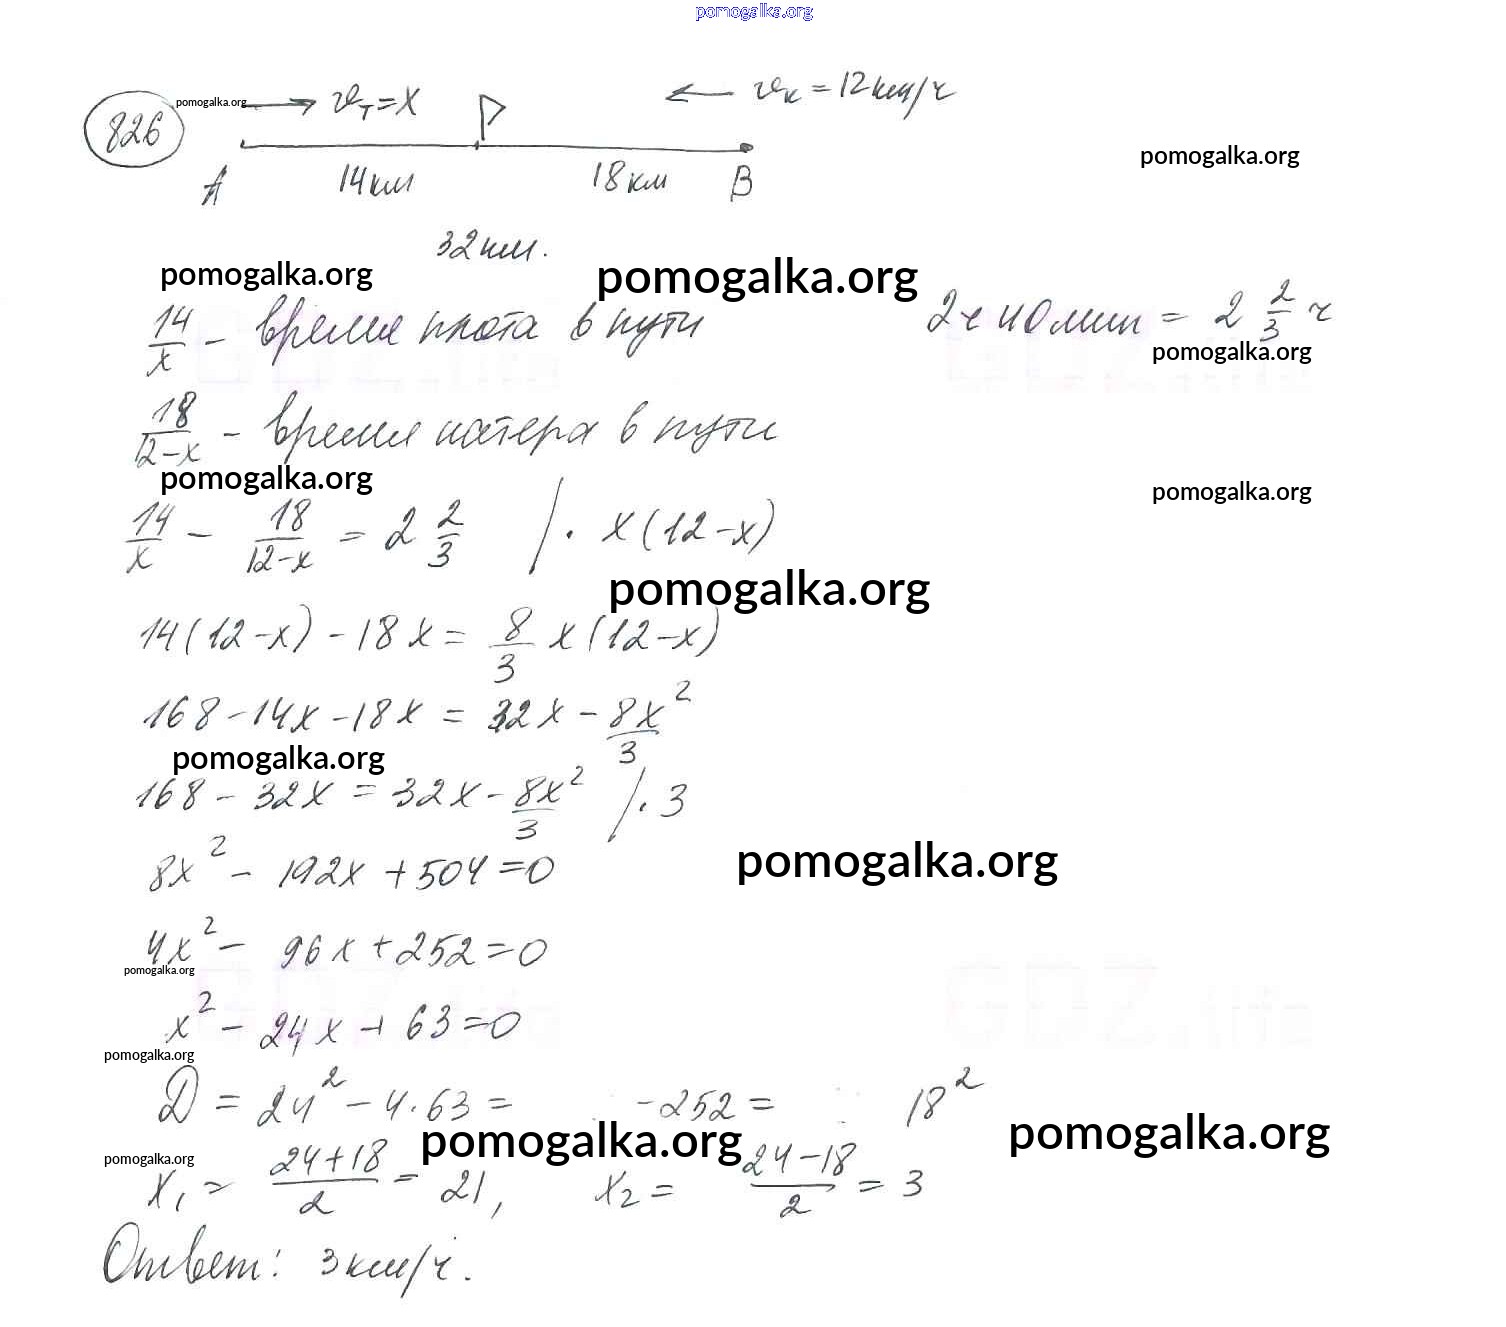 pomogalka.org
826 pomogalka.org → vт = x ← vк = 12 км/ч
pomogalka.org
A 14 км 18 км B
32 км.
pomogalka.org pomogalka.org
14/x - время плота в пути 2 ч 40 мин = 2 2/3 ч
pomogalka.org
18/(12-x) - время катера в пути
pomogalka.org pomogalka.org
14/x - 18/(12-x) = 2 2/3 / · x(12-x)
pomogalka.org
14(12-x) - 18x = 8/3 x(12-x)
168 - 14x - 18x = 32x - 8x²/3
pomogalka.org
168 - 32x = 32x - 8x²/3 / · 3
pomogalka.org
8x² - 192x + 504 = 0
4x² - 96x + 252 = 0
pomogalka.org
x² - 24x + 63 = 0
pomogalka.org
D = 24² - 4·63 = -252 = 18²
pomogalka.org pomogalka.org
pomogalka.org
x₁ = (24+18)/2 = 21, x₂ = (24-18)/2 = 3
Ответ: 3 км/ч.